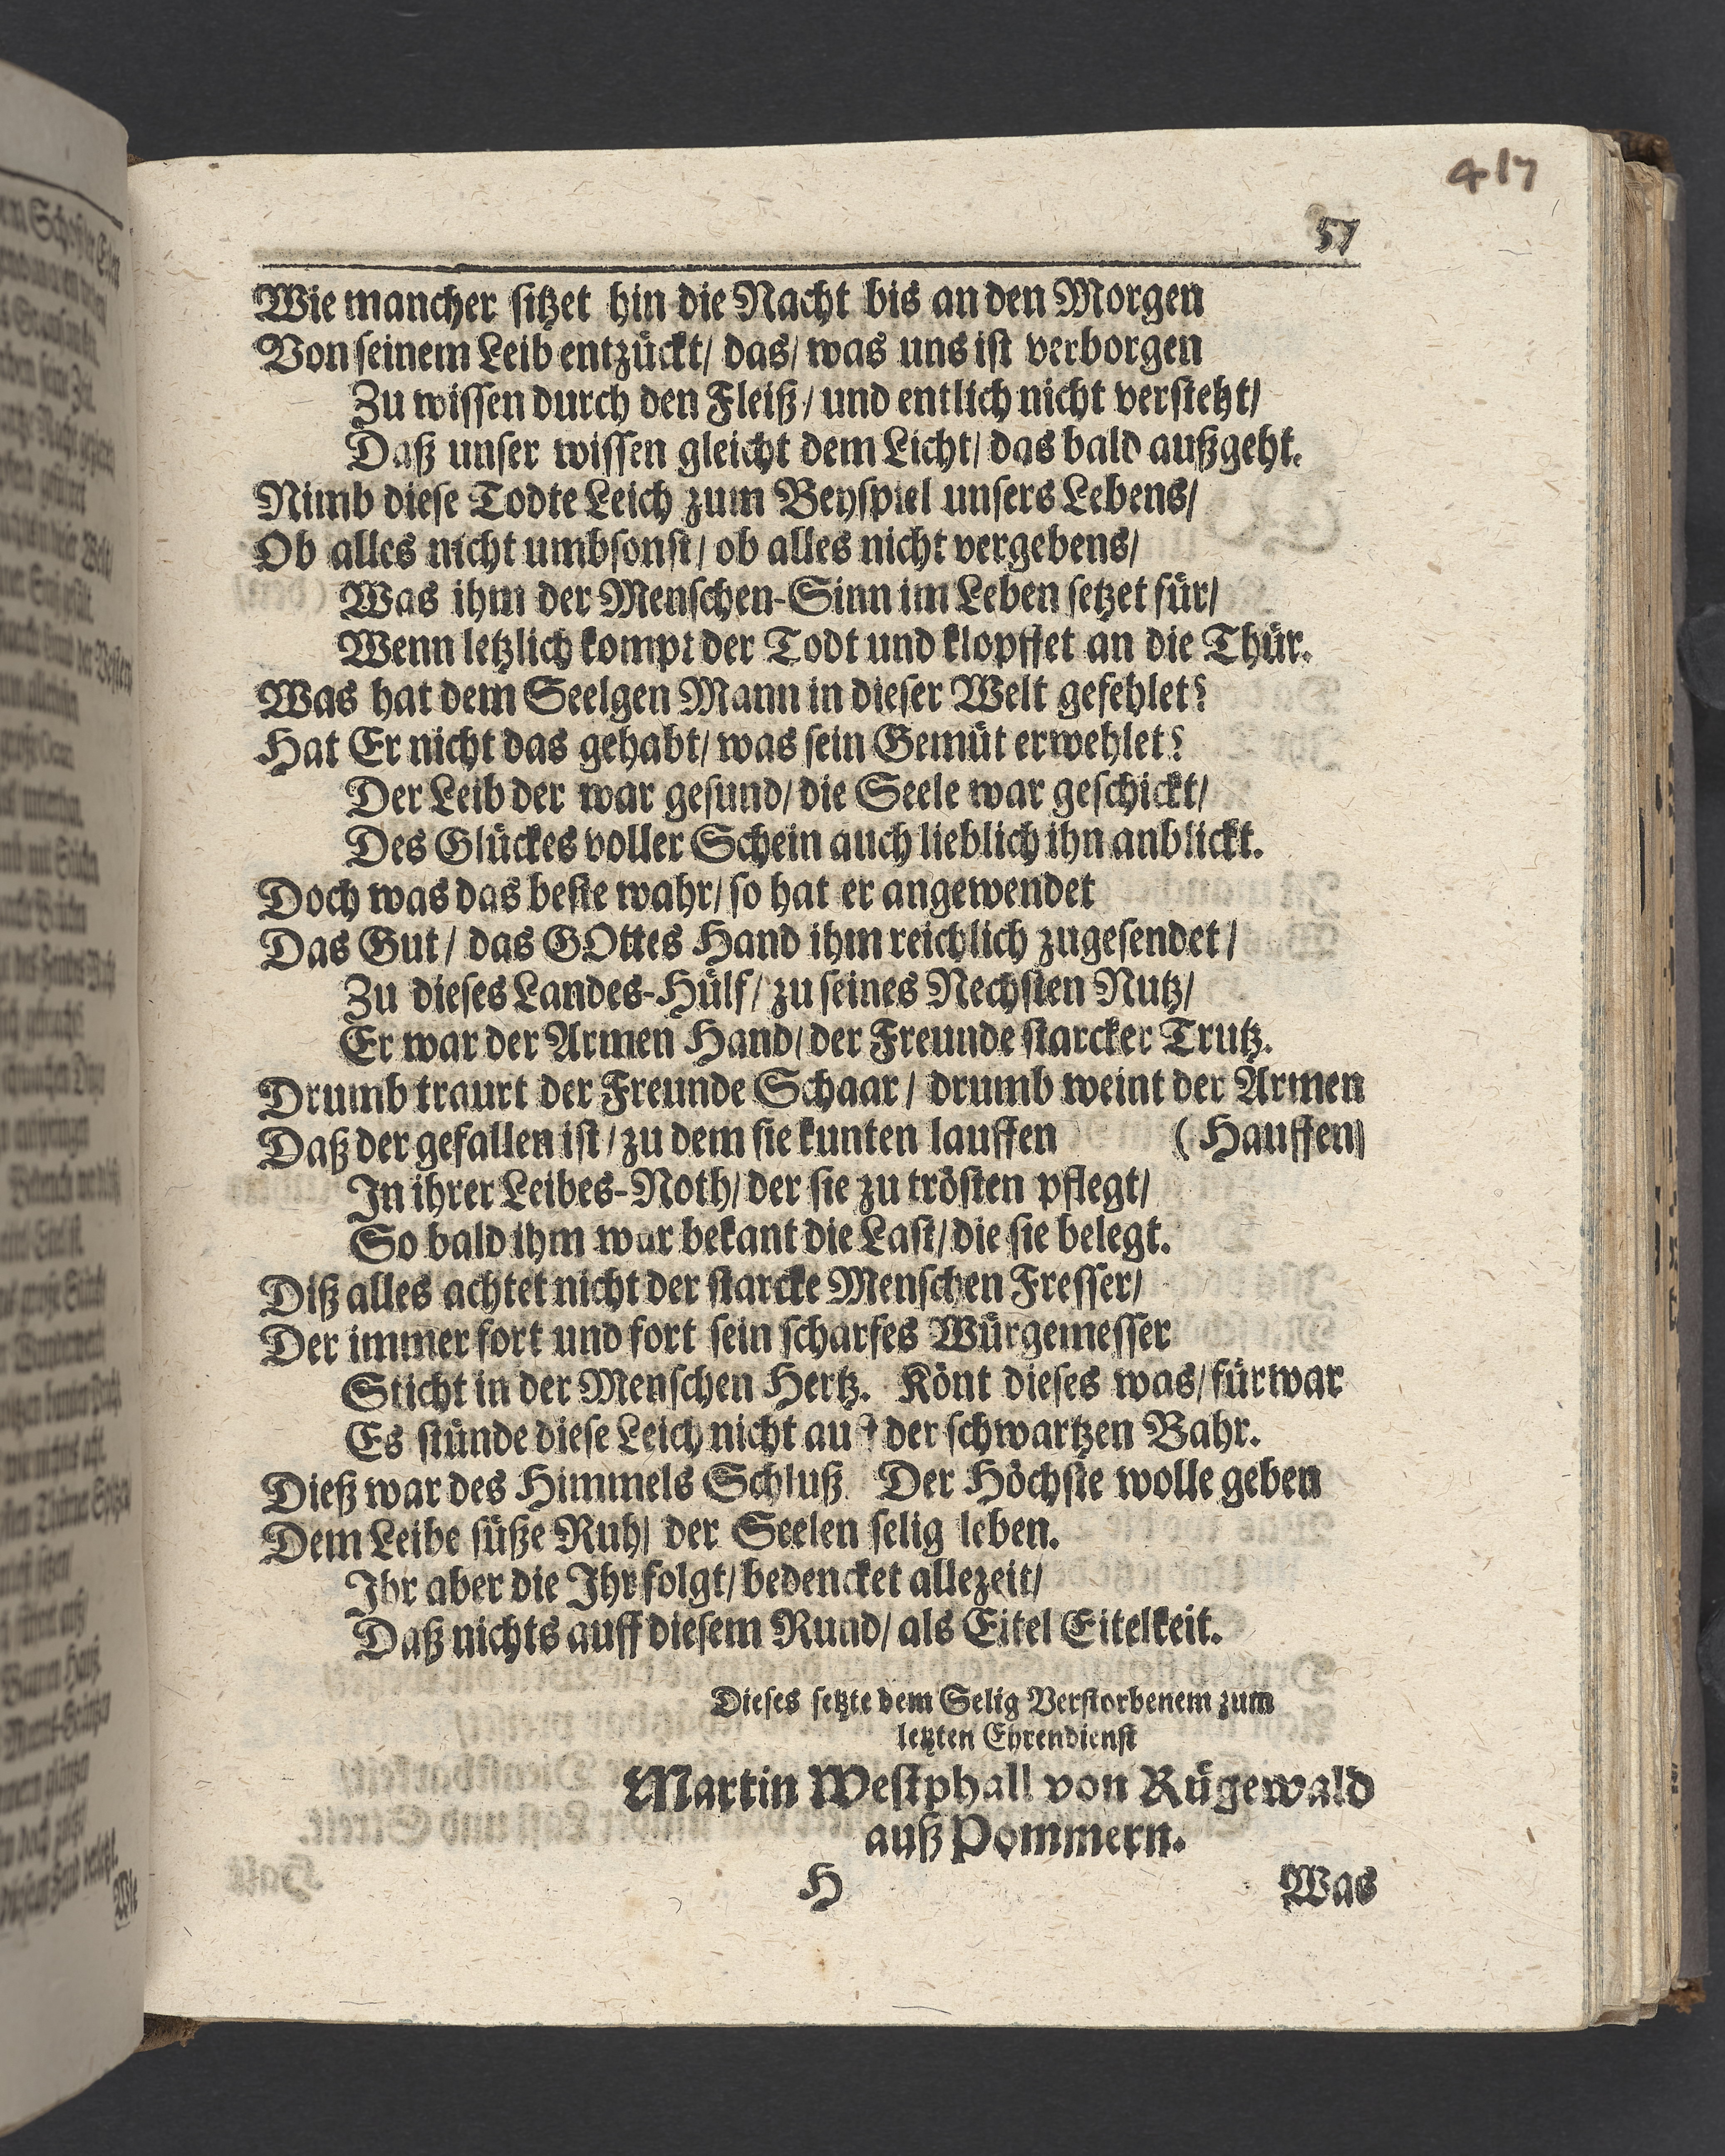 417
57
Wie mancher sitzet hin die Nacht bis an den Morgen
Von seinem Leib entzückt/ das/ was uns ist verborgen
Zu wissen durch den Fleiß/ und entlich nicht versteht/
Daß unser wissen gleicht dem Licht/ das bald außgeht.
Nimb diese Todte Leich zum Beyspiel unsers Lebens/
Ob alles nicht umbsonst/ ob alles nicht vergebens/
Was ihm der Menschen-Sinn im Leben setzet für/
Wenn letzlich kompt der Todt und klopffet an die Thür.
Was hat dem Seelgen Mann in dieser Welt gefehlet?
Hat Er nicht das gehabt/ was sein Gemüt erwehlet?
Der Leib der war gesund/ die Seele war geschickt/
Des Glückes voller Schein auch lieblich ihn anblickt.
Doch was das beste wahr/ so hat er angewendet
Das Gut/ das GOttes Hand ihm reichlich zugesendet/
Zu dieses Landes-Hülf/ zu seines Nechsten Nutz/
Er war der Armen Hand/ der Freunde starcker Trutz.
Drumb traurt der Freunde Schaar/ drumb weint der Armen
Daß der gefallen ist/ zu dem sie kunten lauffen (Hauffen)
In ihrer Leibes-Noth/ der sie zu trösten pflegt/
So bald ihm war bekant die Last/ die sie belegt.
Diß alles achtet nicht der starcke Menschen Fresser/
Der immer fort und fort sein scharfes Würgemesser
Sticht in der Menschen Hertz. Könt dieses was/ fürwar
Es stünde diese Leich nicht auf der schwartzen Bahr.
Dieß war des Himmels Schluß Der Höchste wolle geben
Dem Leibe süße Ruh/ der Seelen selig leben.
Ihr aber die Ihr folgt/ bedencket allezeit/
Daß nichts auff diesem Rund/ als Eitel Eitelkeit.
Dieses setzte dem Selig Verstorbenem zum
letzten Ehrendienst
Martin Westphall von Rügewald
auß Pommern.
H Was